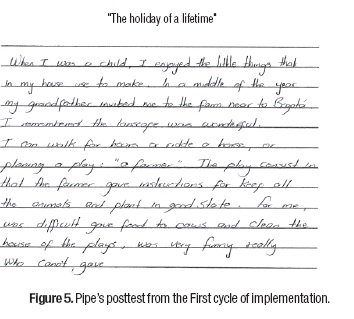 "The holiday of a lifetime"
When I was a child, I enjoyed the little things that
in my house use to make. In a middle of the year
my grandfather invited me to the farm near to Bogotá.
I remembered the lanscape was wonderful.
I can walk for hours or ridde a horse, or
planing a play: "a farmer". The play consist in
that the farmer gave instructions for keep all
the animals and plant in good state. For me,
was difficult gave food to cows and clean the
house of the plays, was very funny really
Who can't, gave
Figure 5. Pipe's posttest from the First cycle of implementation.